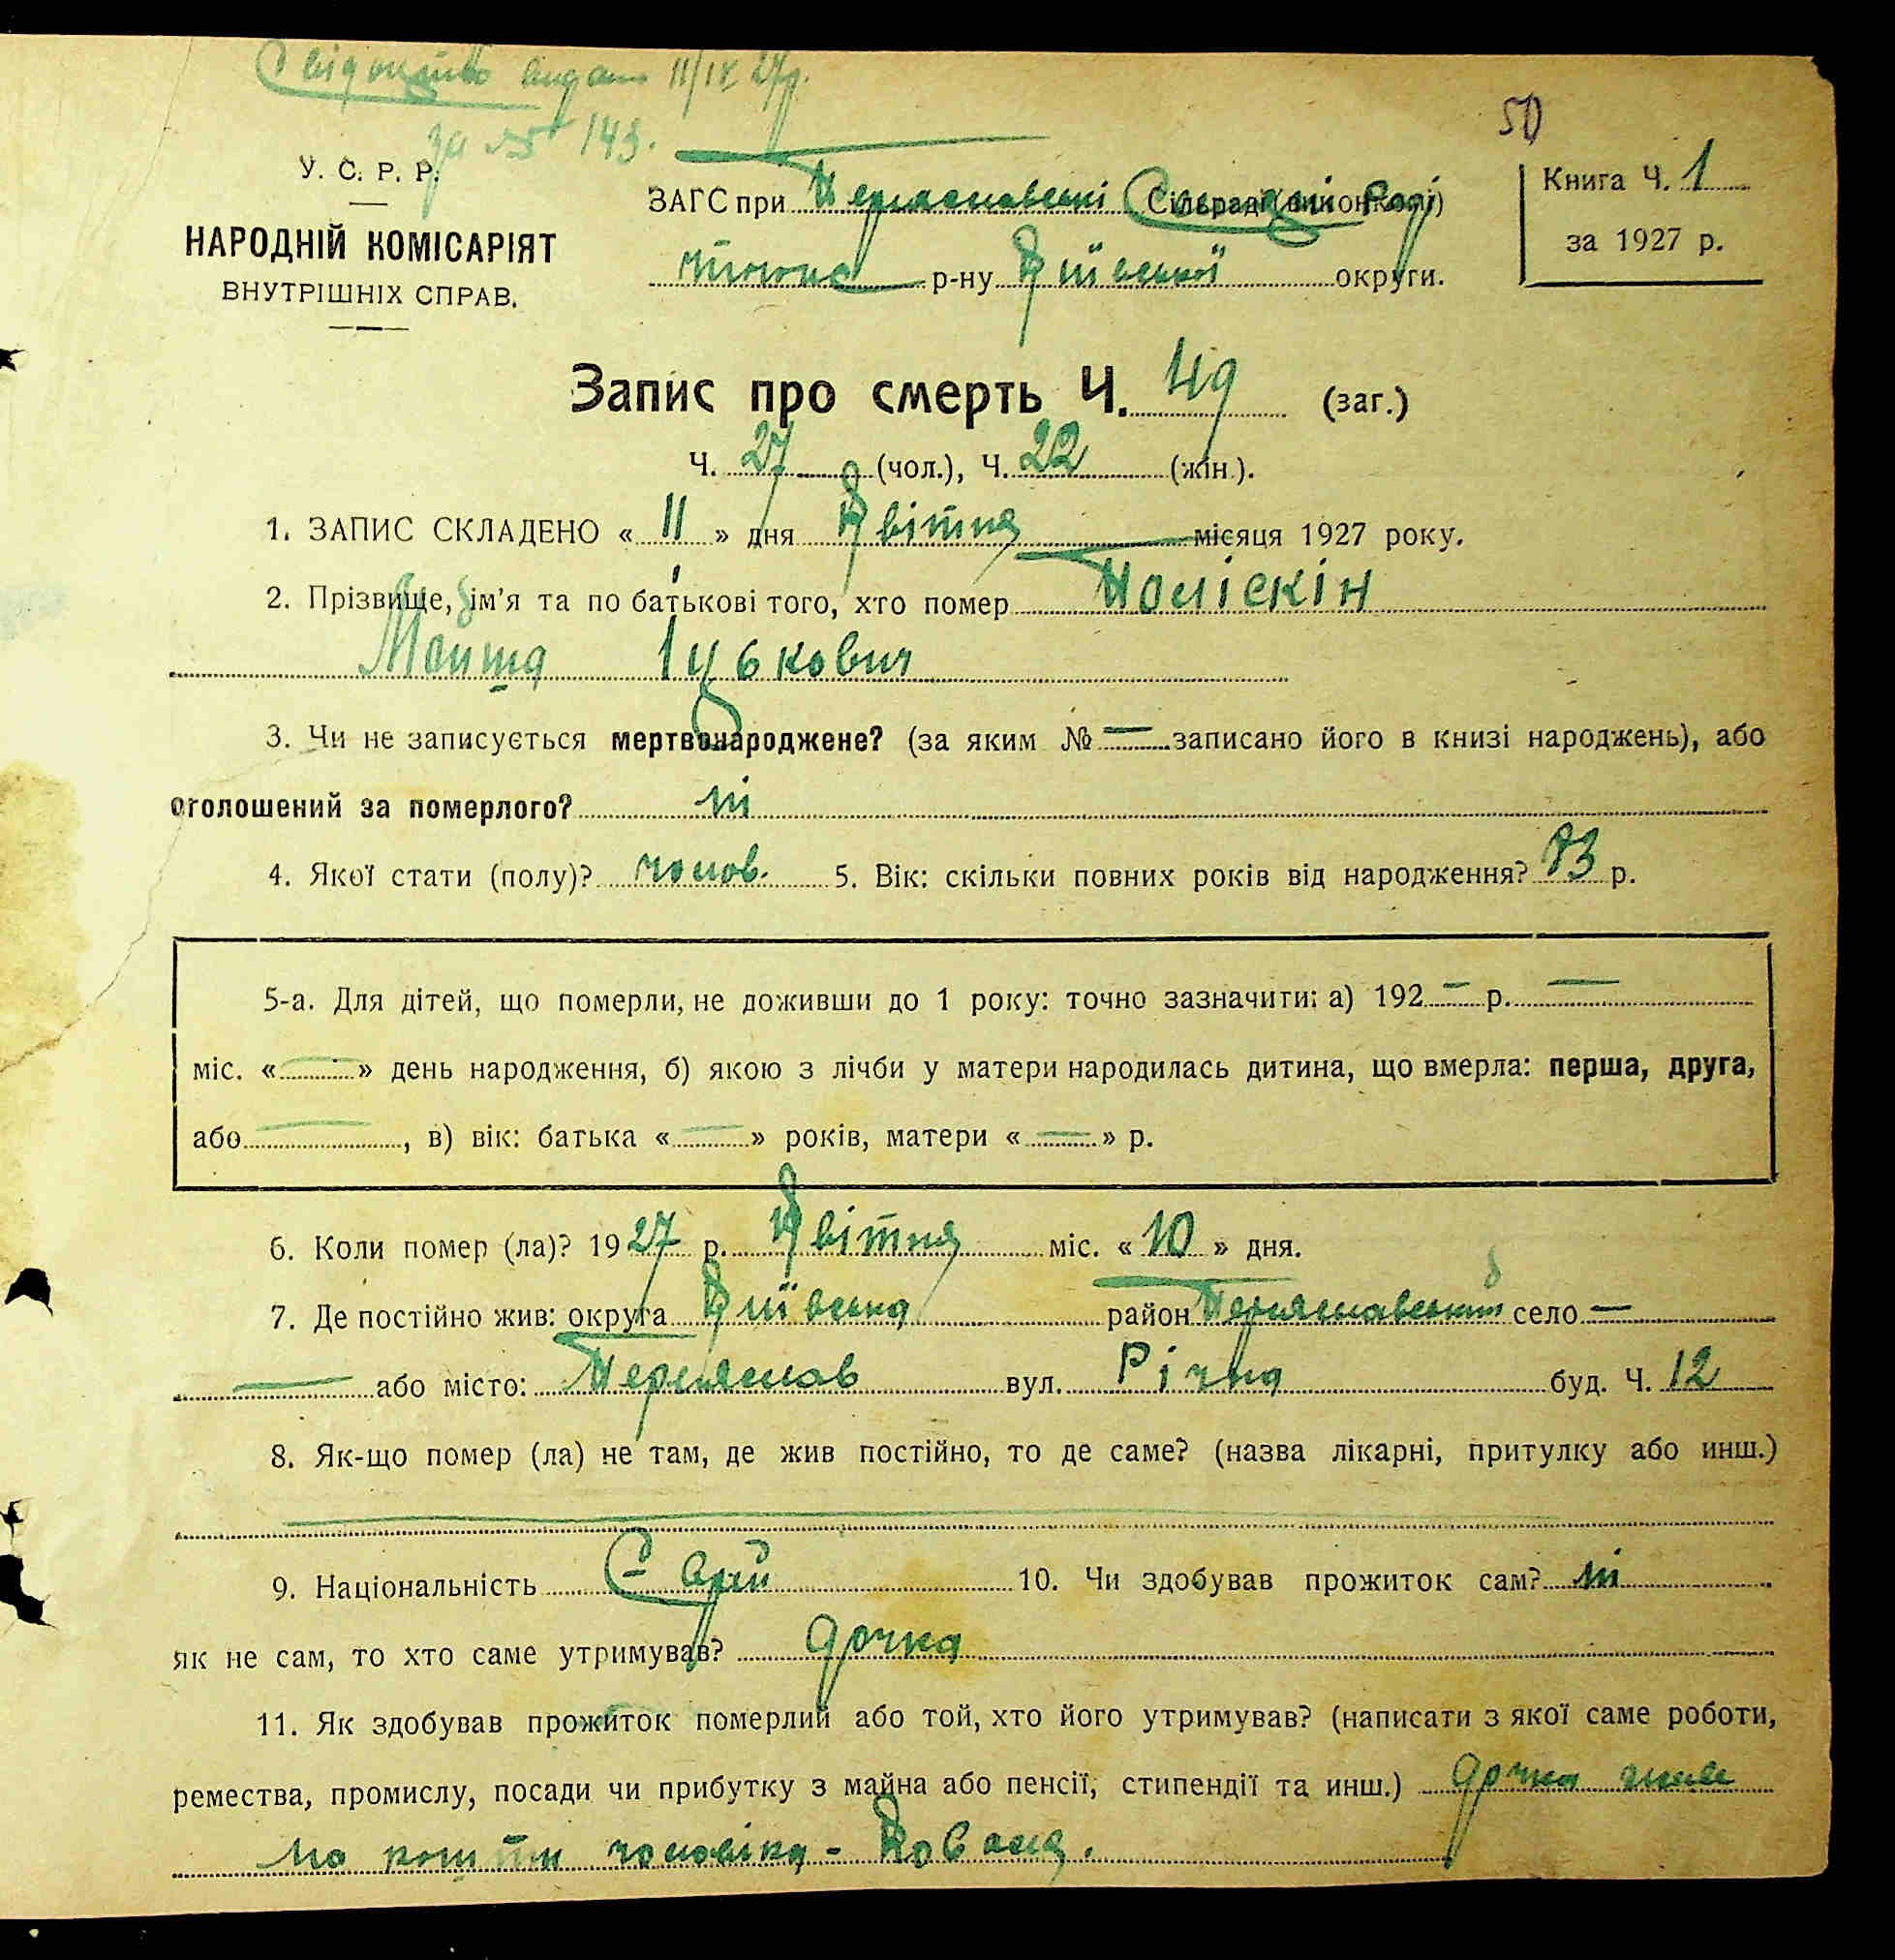 Свідоцтво видано 11/IV 27р.
за № 143.
50
У. С. Р. Р.
НАРОДНІЙ КОМІСАРІЯТ
ВНУТРІШНІХ СПРАВ.
ЗАГС при Переяславські Сільраді (виконкомі)
р-ну Київської округи.
Книга Ч. 1
за 1927 р.
Запис про смерть Ч. 49 (заг.)
Ч. 27 (чол.), Ч. 22 (жін.).
1. ЗАПИС СКЛАДЕНО « 11 » дня Квітня місяця 1927 року.
2. Прізвище, ім'я та по батькові того, хто помер Поліскін
Мойша Іцькович
3. Чи не записується мертвонароджене? (за яким № — записано його в книзі народжень), або
оголошений за померлого? ні
4. Якої стати (полу)? чолов. 5. Вік: скільки повних років від народження? 83 р.
5-а. Для дітей, що померли, не доживши до 1 року: точно зазначити: а) 192 — р. —
міс. « — » день народження, б) якою з лічби у матери народилась дитина, що вмерла: перша, друга,
або —, в) вік: батька « — » років, матери « — » р.
6. Коли помер (ла)? 1927 р. Квітня міс. « 10 » дня.
7. Де постійно жив: округа Київська район Переяславський село —
— або місто: Переяслав вул. Річна буд. Ч. 12
8. Як-що помер (ла) не там, де жив постійно, то де саме? (назва лікарні, притулку або инш.)
9. Національність Єврей 10. Чи здобував прожиток сам? ні
як не сам, то хто саме утримував? дочка
11. Як здобував прожиток померлий або той, хто його утримував? (написати з якої саме роботи,
ремества, промислу, посади чи прибутку з майна або пенсії, стипендії та инш.) дочка живе
на кошти чоловіка - Коваля.